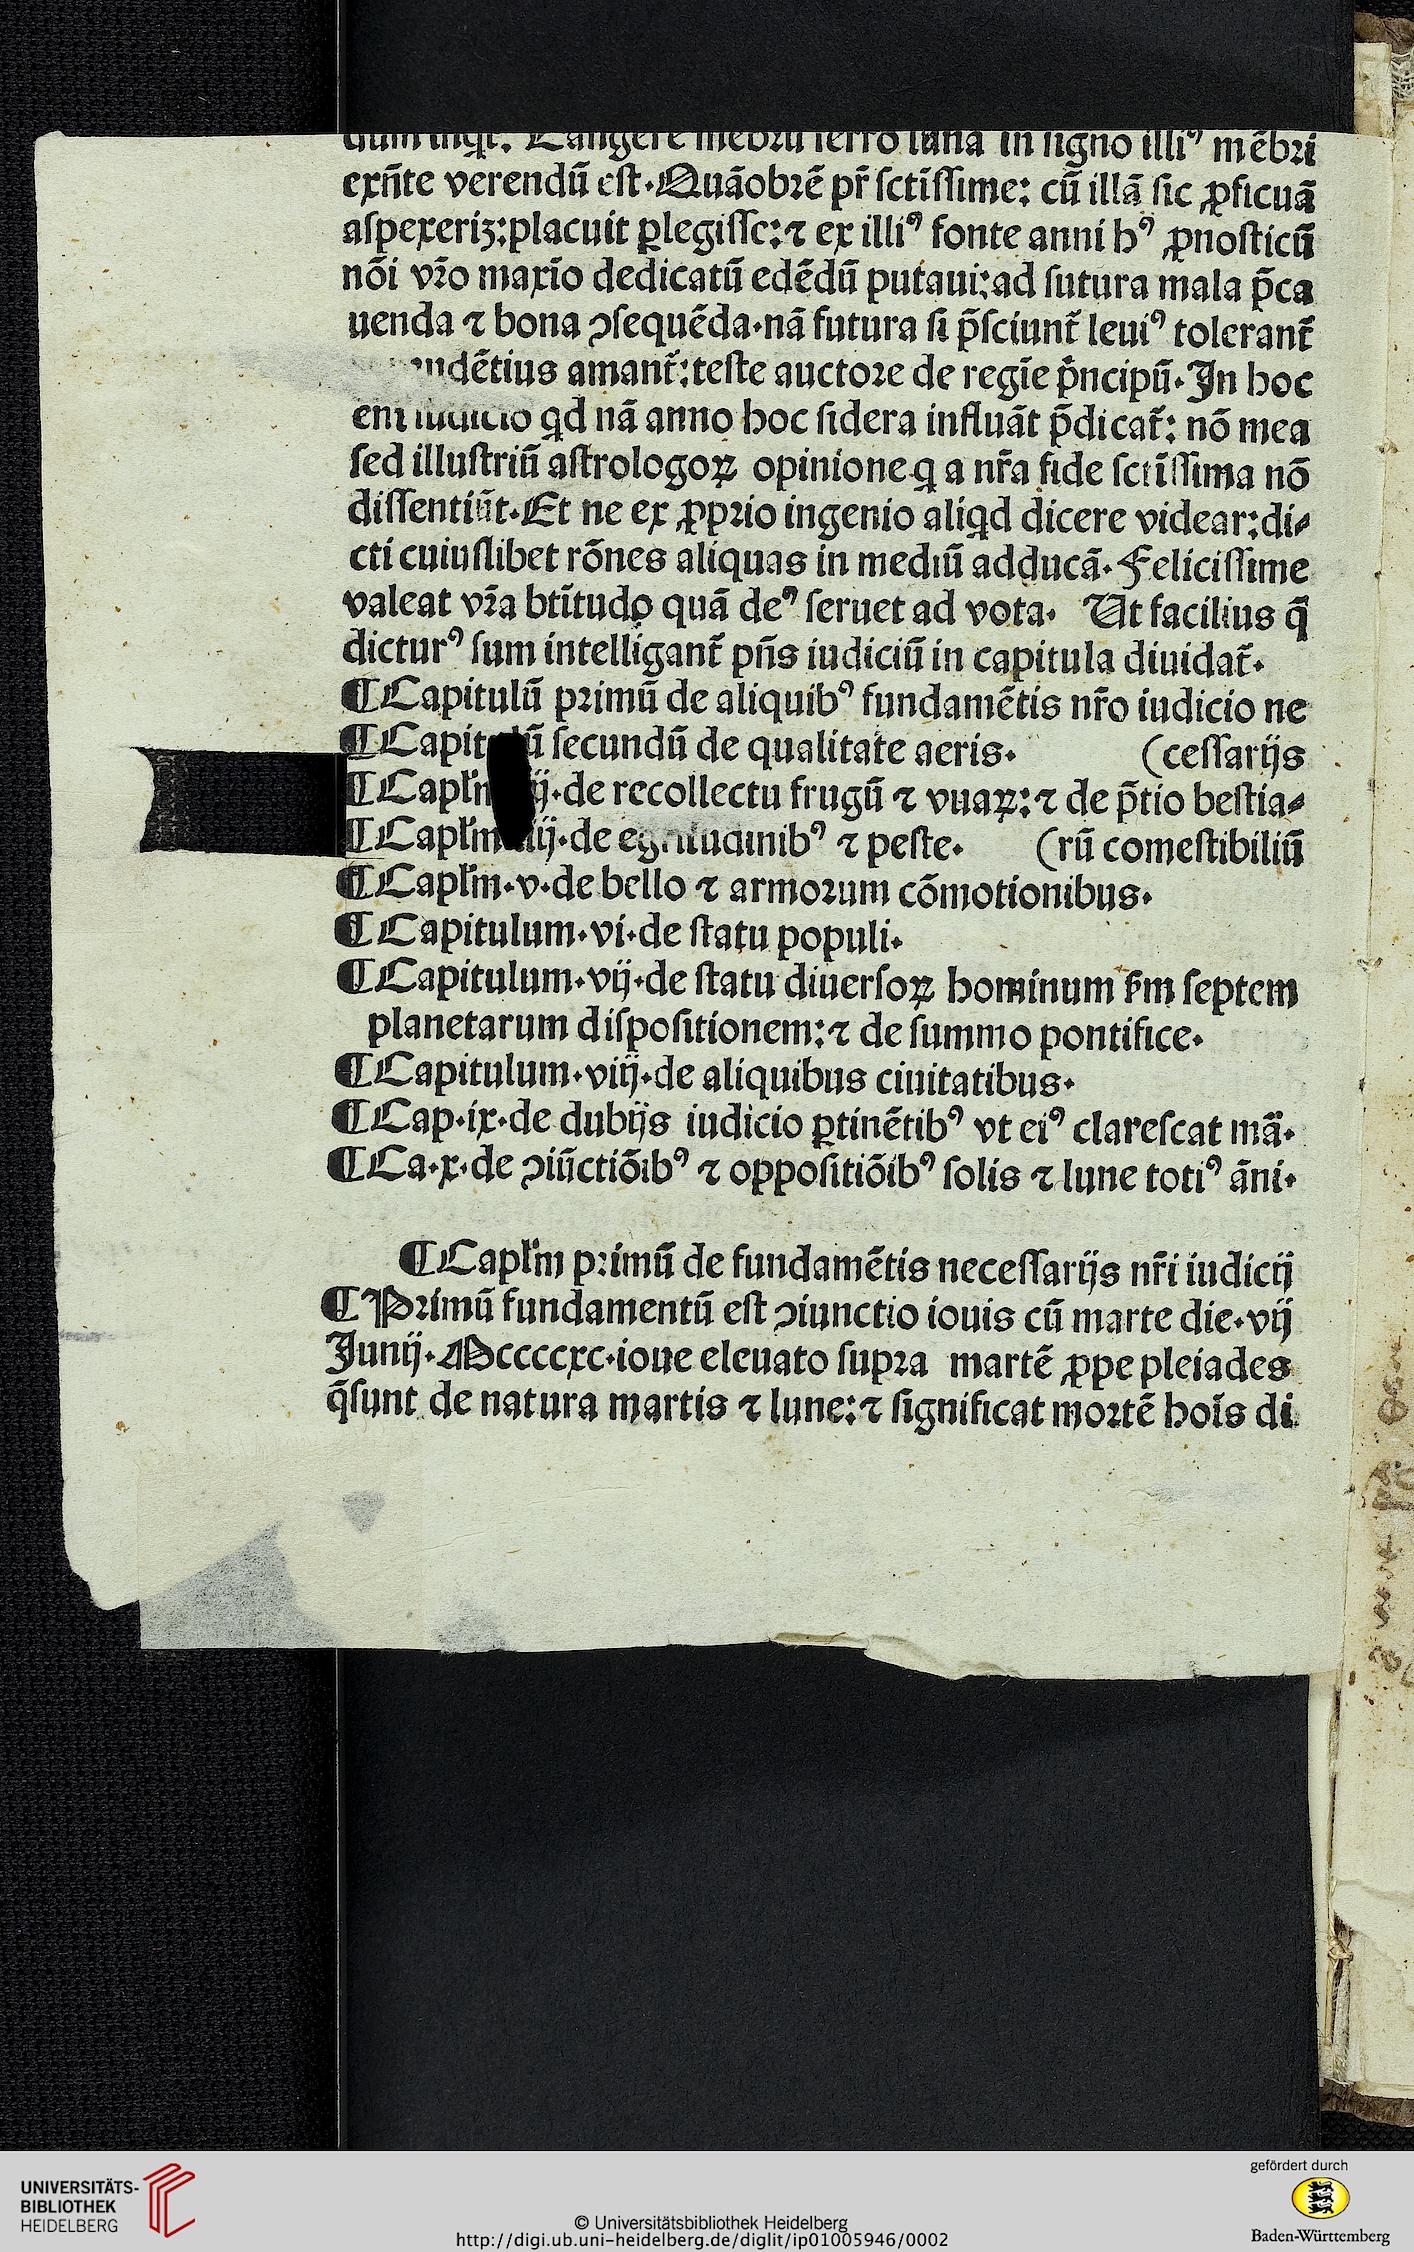 Tangere mēbrū ferro luna in signo illiꝰ mēbri
exn̄te verendū est. Quāobrē pr̄ sctīssime: cū illā sic ꝓficuā
aspexeriꝫ: placuit ꝑlegisse: ⁊ ex illiꝰ fonte anni hꝰ ꝓnosticū
nōi vr̄o maxīo dedicatū edēdū putaui: ad futura mala p̄ca
uenda ⁊ bona ↄsequēda. nā futura si p̄sciunt̄ leuiꝰ tolerant̄
dētius amant̄: teste auctore de regīe pn̄cipū. In hoc
eni iudicio qd nā anno hoc sidera influāt p̄dicat̄: nō mea
sed illustriū astrologoꝝ opinione q a nr̄a fide sctīssima nō
dissentiūt. Et ne ex ꝓprio ingenio aliqd dicere videar: di⸗
cti cuiuslibet rōnes aliquas in mediū adducā. Felicissime
valeat vr̄a btītudo quā deꝰ seruet ad vota. Ut facilius q̄
dicturꝰ sum intelligant̄ pn̄s iudiciū in capitula diuidat̄.
¶ Capitulū primū de aliquibꝰ fundamētis nr̄o iudicio ne
¶ Capitulū secundū de qualitate aeris. (cessarijs
¶ Capl̄m iij. de recollectu frugū ⁊ vuaꝝ: ⁊ de p̄tio bestia⸗
¶ Capl̄m iiij. de egritudinibꝰ ⁊ peste. (rū comestibiliū
¶ Capl̄m. v. de bello ⁊ armorum cōmotionibus.
¶ Capitulum. vi. de statu populi.
¶ Capitulum. vij. de statu diuersoꝝ hominum ẜm septem
planetarum dispositionem: ⁊ de summo pontifice.
¶ Capitulum. viij. de aliquibus ciuitatibus.
¶ Cap. ix. de dubijs iudicio ꝑtinētibꝰ vt eiꝰ clarescat mā.
¶ Ca. x. de ↄiūctiōibꝰ ⁊ oppositiōibꝰ solis ⁊ lune totiꝰ āni.
¶ Capl̄m primū de fundamētis necessarijs nr̄i iudicij
¶ Primū fundamentū est ↄiunctio iouis cū marte die. vij
Junij. Mccccxc. ioue eleuato supra martē ꝓpe pleiades
q̄ sunt de natura martis ⁊ lune: ⁊ significat mortē hoīs di
UNIVERSITÄTS-
BIBLIOTHEK
HEIDELBERG
© Universitätsbibliothek Heidelberg
http://digi.ub.uni-heidelberg.de/diglit/ip01005946/0002
gefördert durch
Baden-Württemberg